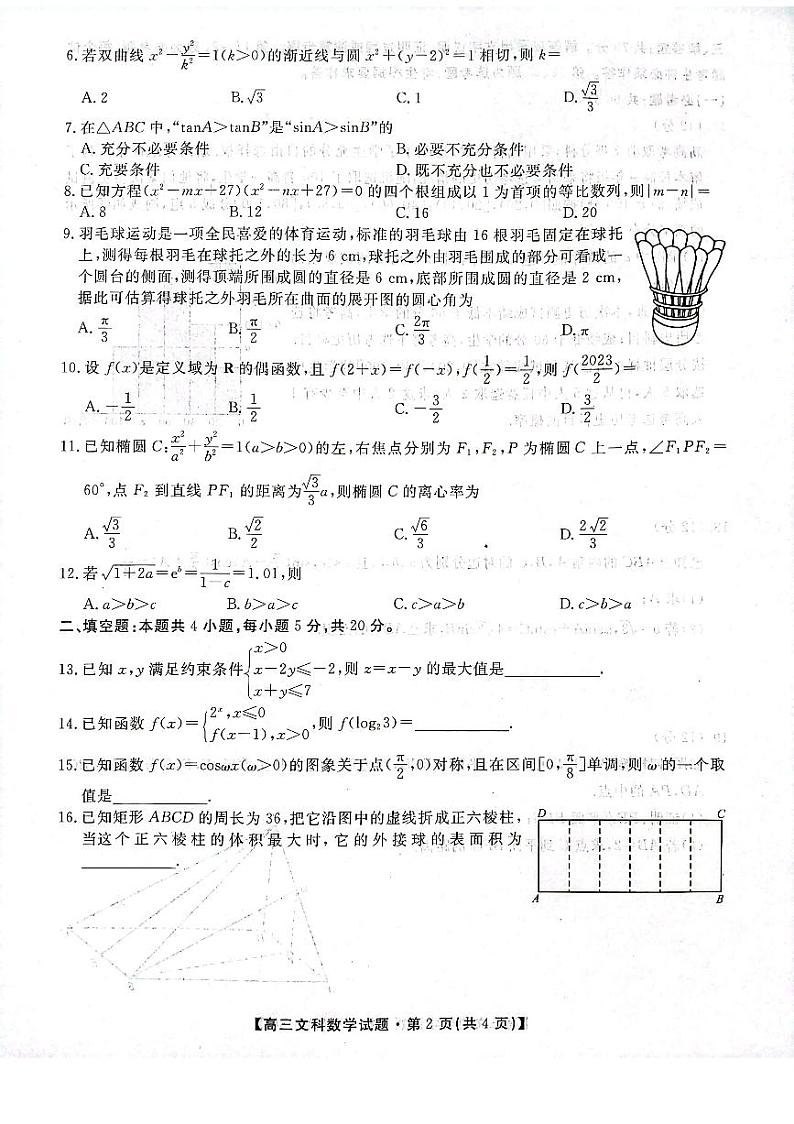 6.若双曲线 x²－y²/k²＝1(k＞0)的渐近线与圆 x²＋(y－2)²＝1相切,则 k＝
A. 2 B. √3 C. 1 D. √3/3
7.在△ABC 中,“tanA＞tanB”是“sinA＞sinB”的
A. 充分不必要条件 B. 必要不充分条件
C. 充要条件 D. 既不充分也不必要条件
8.已知方程(x²－mx＋27)(x²－nx＋27)＝0 的四个根组成以 1 为首项的等比数列,则|m－n|＝
A. 8 B. 12 C. 16 D. 20
9.羽毛球运动是一项全民喜爱的体育运动,标准的羽毛球由 16 根羽毛固定在球托
上,测得每根羽毛在球托之外的长为 6 cm,球托之外由羽毛围成的部分可看成一
个圆台的侧面,测得顶端所围成圆的直径是 6 cm,底部所围成圆的直径是 2 cm,
据此可估算得球托之外羽毛所在曲面的展开图的圆心角为
A. π/3 B. π/2 C. 2π/3 D. π
10.设 f(x)是定义域为 R 的偶函数,且 f(2＋x)＝f(－x),f(1/2)＝1/2,则 f(2023/2)＝
A. －1/2 B. 1/2 C. －3/2 D. 3/2
11.已知椭圆 C:x²/a²＋y²/b²＝1(a＞b＞0)的左,右焦点分别为 F₁,F₂,P 为椭圆 C 上一点,∠F₁PF₂＝
60°,点 F₂ 到直线 PF₁ 的距离为√3/3a,则椭圆 C 的离心率为
A. √3/3 B. √2/2 C. √6/3 D. 2√2/3
12.若√(1＋2a)＝eᵇ＝1/(1－c)＝1.01,则
A. a＞b＞c B. b＞a＞c C. c＞a＞b D. c＞b＞a
二、填空题:本题共 4 小题,每小题 5 分,共 20 分。
13.已知 x,y 满足约束条件{x＞0
x－2y≤－2,则 z＝x－y 的最大值是________.
x＋y≤7
14.已知函数 f(x)＝{2ˣ,x≤0
f(x－1),x＞0,则 f(log₂3)＝________.
15.已知函数 f(x)＝cosωx(ω＞0)的图象关于点(π/2,0)对称,且在区间[0,π/8]单调,则 ω 的一个取
值是________.
16.已知矩形 ABCD 的周长为 36,把它沿图中的虚线折成正六棱柱,
当这个正六棱柱的体积最大时,它的外接球的表面积为
________.
D C
A B
【高三文科数学试题·第 2 页(共 4 页)】